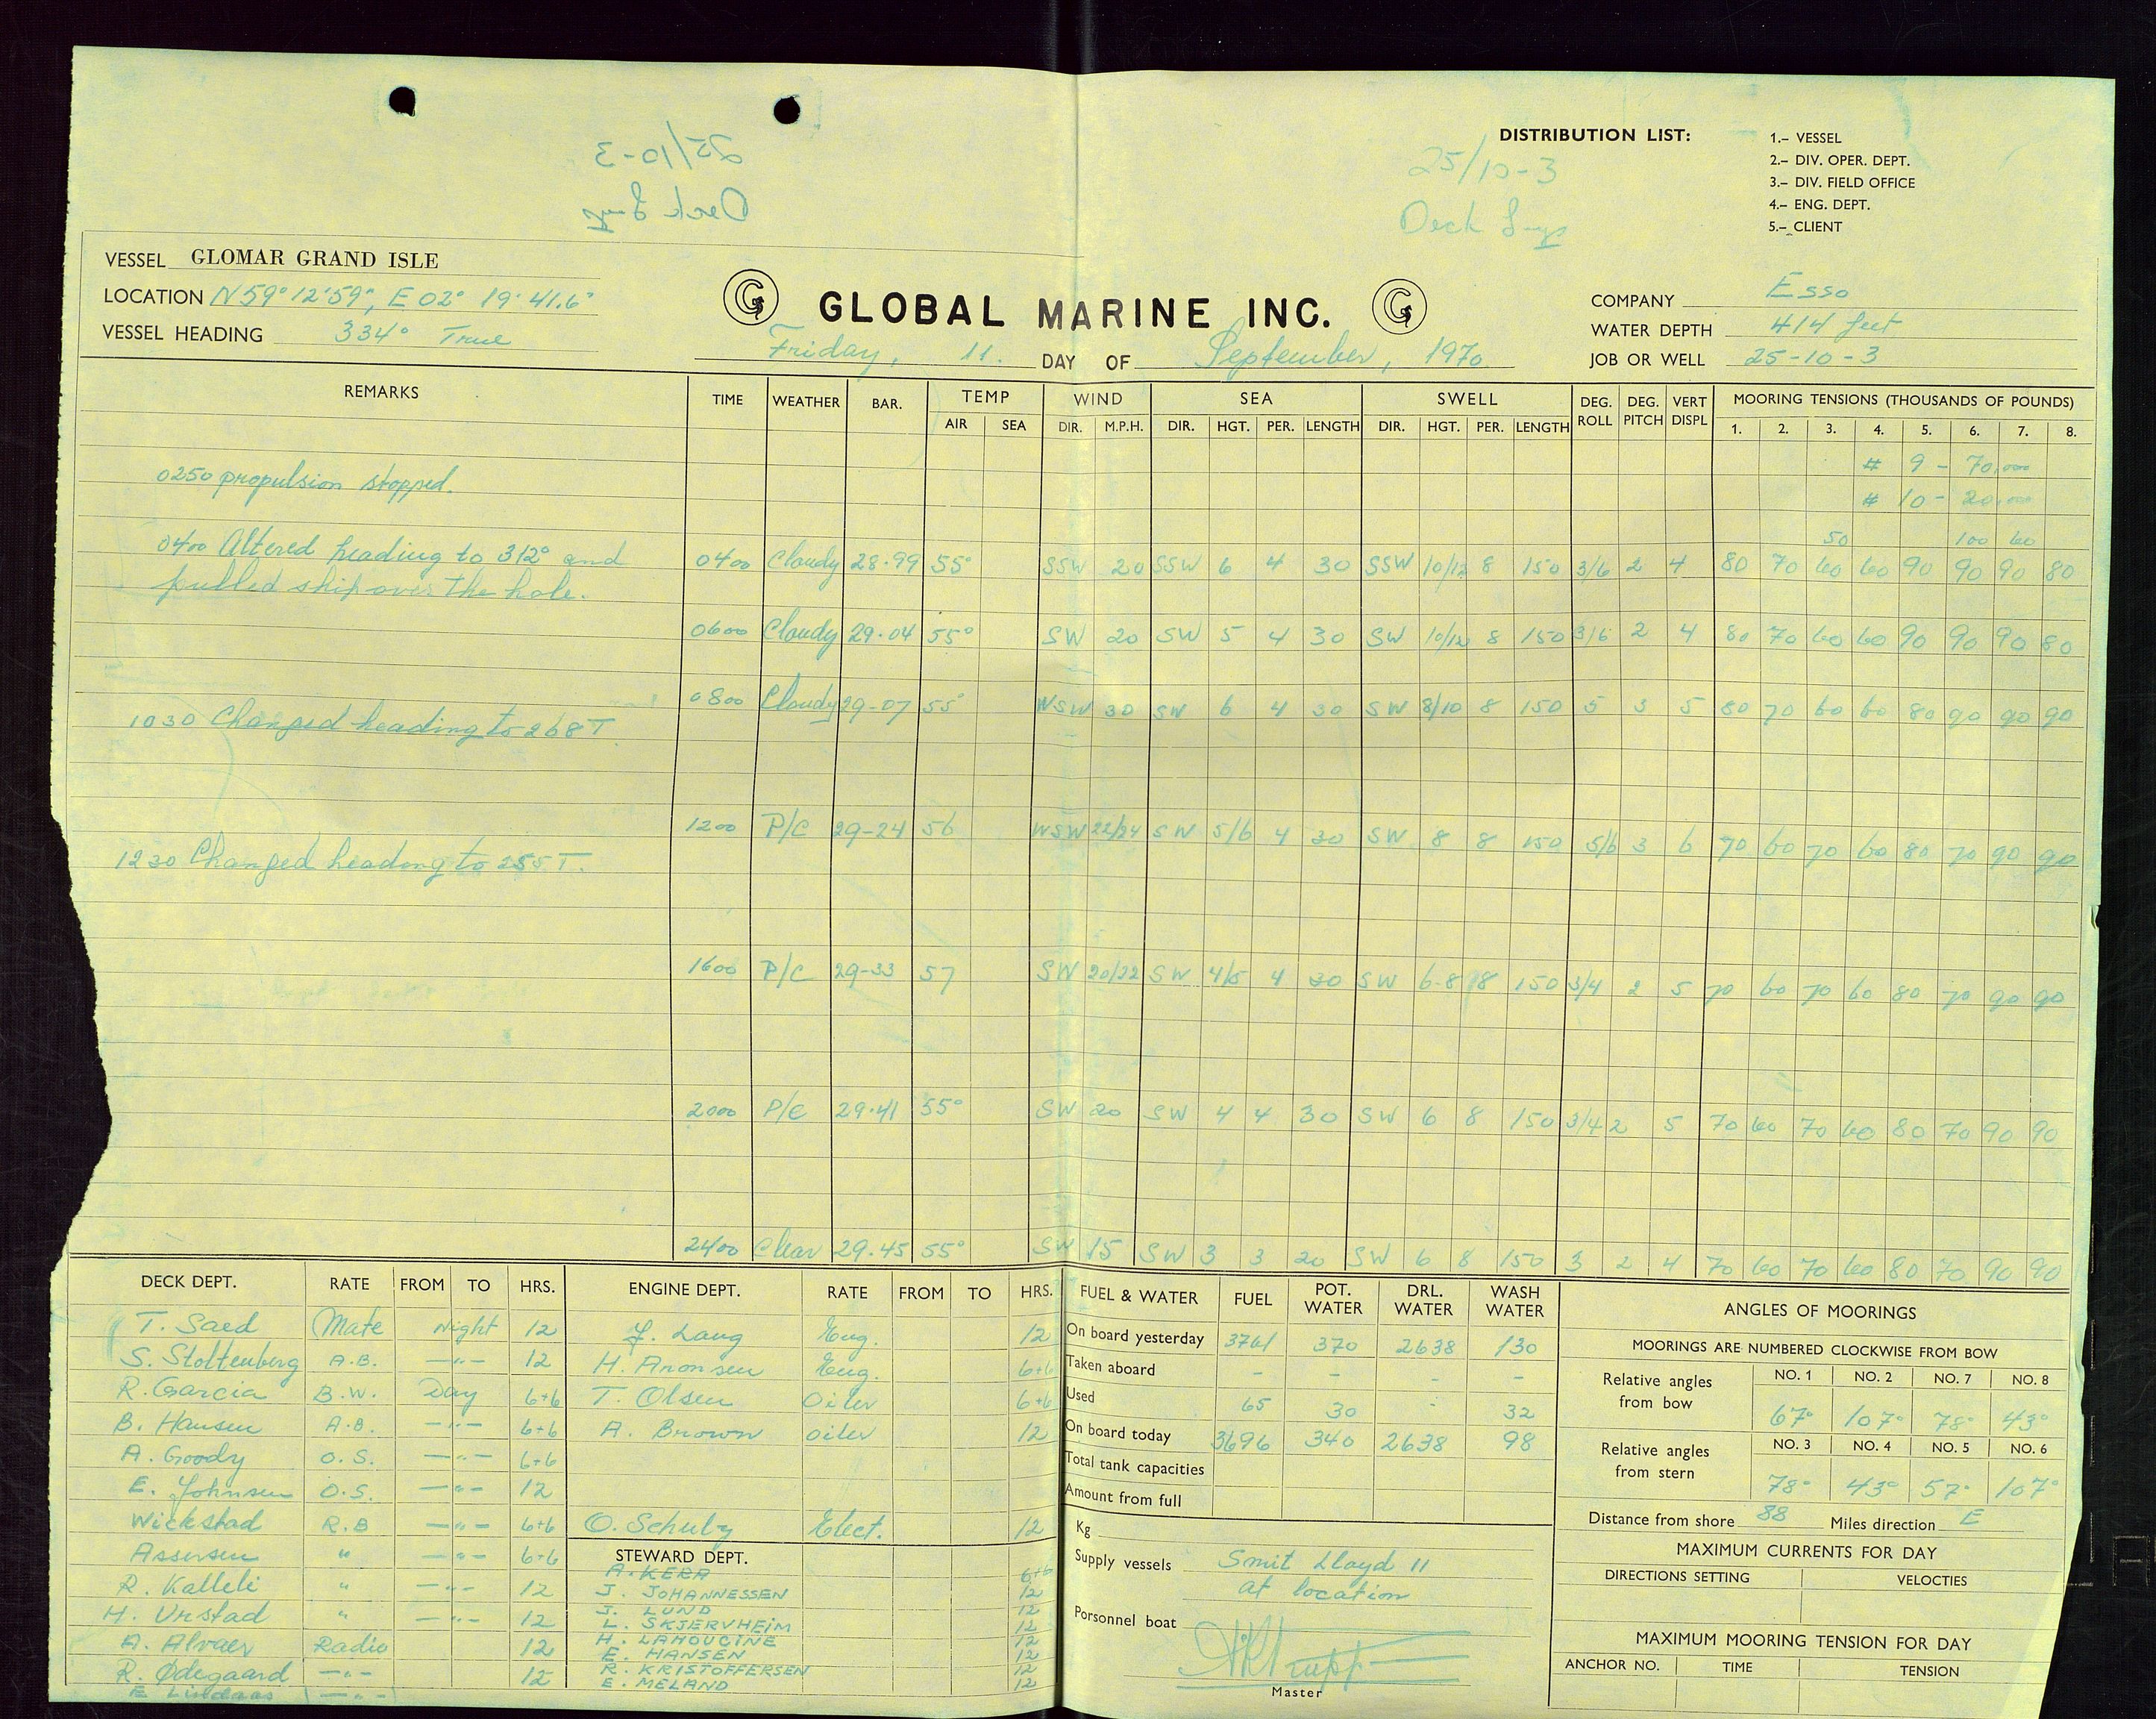 25/10-3
Deck
DISTRIBUTION LIST:
1.- VESSEL
2.- DIV. OPER. DEPT.
3.- DIV. FIELD OFFICE
4.- ENG. DEPT.
5.- CLIENT
25/10-3
Deck
VESSEL GLOMAR GRAND ISLE
LOCATION N 59° 12' 59", E 02° 19' 41.6"
VESSEL HEADING 334° True
GLOBAL MARINE INC.
Friday, 11. DAY OF September, 1970
COMPANY Esso
WATER DEPTH 414 feet
JOB OR WELL 25-10-3
REMARKS TIME WEATHER BAR. TEMP WIND SEA SWELL DEG. ROLL DEG. PITCH VERT DISPL MOORING TENSIONS (THOUSANDS OF POUNDS)
AIR SEA DIR. M.P.H. DIR. HGT. PER. LENGTH DIR. HGT. PER. LENGTH 1. 2. 3. 4. 5. 6. 7. 8.
# 9 - 70,000
0250 propulsion stopped.
# 10 - 20,000
50 100 60
0400 Altered heading to 312° and
pulled ship over the hole.
0400 Cloudy 28.99 55° SSW 20 SSW 6 4 30 SSW 10/12 8 150 3/6 2 4 80 70 60 60 90 90 90 80
0600 Cloudy 29.04 55° SW 20 SW 5 4 30 SW 10/12 8 150 3/6 2 4 80 70 60 60 90 90 90 80
0800 Cloudy 29-07 55° WSW 30 SW 6 4 30 SW 8/10 8 150 5 3 5 80 70 60 60 80 90 90 90
1030 Changed heading to 268 T
1200 P/C 29-24 56 WSW 22/24 SW 5/6 4 30 SW 8 8 150 5/6 3 6 70 60 70 60 80 70 90 90
1230 Changed heading to 255 T.
1600 P/C 29-33 57 SW 20/22 SW 4/5 4 30 SW 6-8 8 150 3/4 2 5 70 60 70 60 80 70 90 90
2000 P/C 29.41 55° SW 20 SW 4 4 30 SW 6 8 150 3/4 2 5 70 60 70 60 80 70 90 90
2400 Clear 29.45 55° SW 15 SW 3 3 20 SW 6 8 150 3 2 4 70 60 70 60 80 70 90 90
DECK DEPT. RATE FROM TO HRS.
T. Saed Mate Night 12
S. Stoltenberg A.B. —"— 12
R. Garcia B.W. Day 6+6
B. Hansen A.B. —"— 6+6
A. Goody O.S. —"— 6+6
E. Johnsen O.S. —"— 12
Wickstad R.B —"— 6+6
Assersen " —"— 6+6
R. Kalleli " —"— 12
H. Urstad " —"— 12
A. Alvaer Radio 12
R. Ødegaard —"— 12
—"—
ENGINE DEPT. RATE FROM TO HRS.
J. Lang Eng. 12
H. Aronsen Eng. 6+6
T. Olsen Oiler 6+6
A. Brown oiler 12
O. Schulz Elect. 12
STEWARD DEPT.
A. KERR 6+6
J. JOHANNESSEN 12
J. LUND 12
L. SKJERVHEIM 12
H. LAHOUCINE 12
E. HANSEN 12
R. KRISTOFFERSEN 12
E. MELAND 12
FUEL & WATER FUEL POT. WATER DRL. WATER WASH WATER
On board yesterday 3761 370 2638 130
Taken aboard - - - -
Used 65 30 - 32
On board today 3696 340 2638 98
Total tank capacities
Amount from full
Kg
Supply vessels Smit Lloyd 11
at location
Porsonnel boat
Master
ANGLES OF MOORINGS
MOORINGS ARE NUMBERED CLOCKWISE FROM BOW
Relative angles from bow NO. 1 NO. 2 NO. 7 NO. 8
67° 107° 78° 43°
Relative angles from stern NO. 3 NO. 4 NO. 5 NO. 6
78° 43° 57° 107°
Distance from shore 88 Miles direction E
MAXIMUM CURRENTS FOR DAY
DIRECTIONS SETTING VELOCTIES
MAXIMUM MOORING TENSION FOR DAY
ANCHOR NO. TIME TENSION